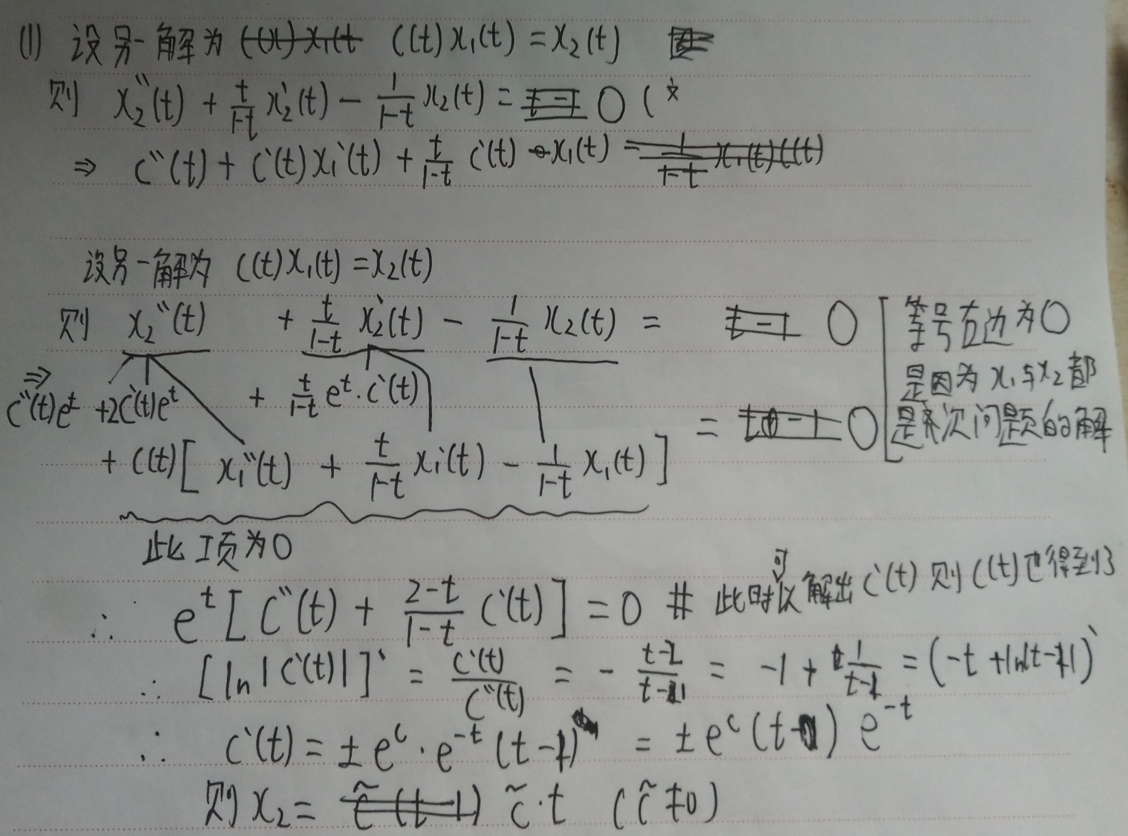 (1) 设另一解为 C(t)x₁(t) = x₂(t)
则 x₂''(t) + t/(1-t) x₂'(t) - 1/(1-t) x₂(t) = 0 (
⇒ C''(t) + C'(t)x₁'(t) + t/(1-t) C'(t) x₁(t)
设另一解为 C(t)x₁(t) = x₂(t)
则 x₂''(t) + t/(1-t) x₂'(t) - 1/(1-t) x₂(t) = 0 [等号右边为0
⇒ C''(t)eᵗ + 2C'(t)eᵗ + t/(1-t) eᵗ·C'(t) 是因为 x₁与x₂都
+ C(t)[x₁''(t) + t/(1-t) x₁'(t) - 1/(1-t) x₁(t)] = 0 是齐次问题的解
此项为0
∴ eᵗ[C''(t) + (2-t)/(1-t) C'(t)] = 0 # 此时可以解出C'(t) 则C(t)也得到了
∴ [ln|C'(t)|]' = C'(t)/C''(t) = - (t-2)/(t-1) = -1 + 1/(t-1) = (-t + ln|t-1|)'
∴ C'(t) = ±eᶜ·e⁻ᵗ(t-1) = ±eᶜ(t-1) e⁻ᵗ
则 x₂ = c̃·t (c̃≠0)